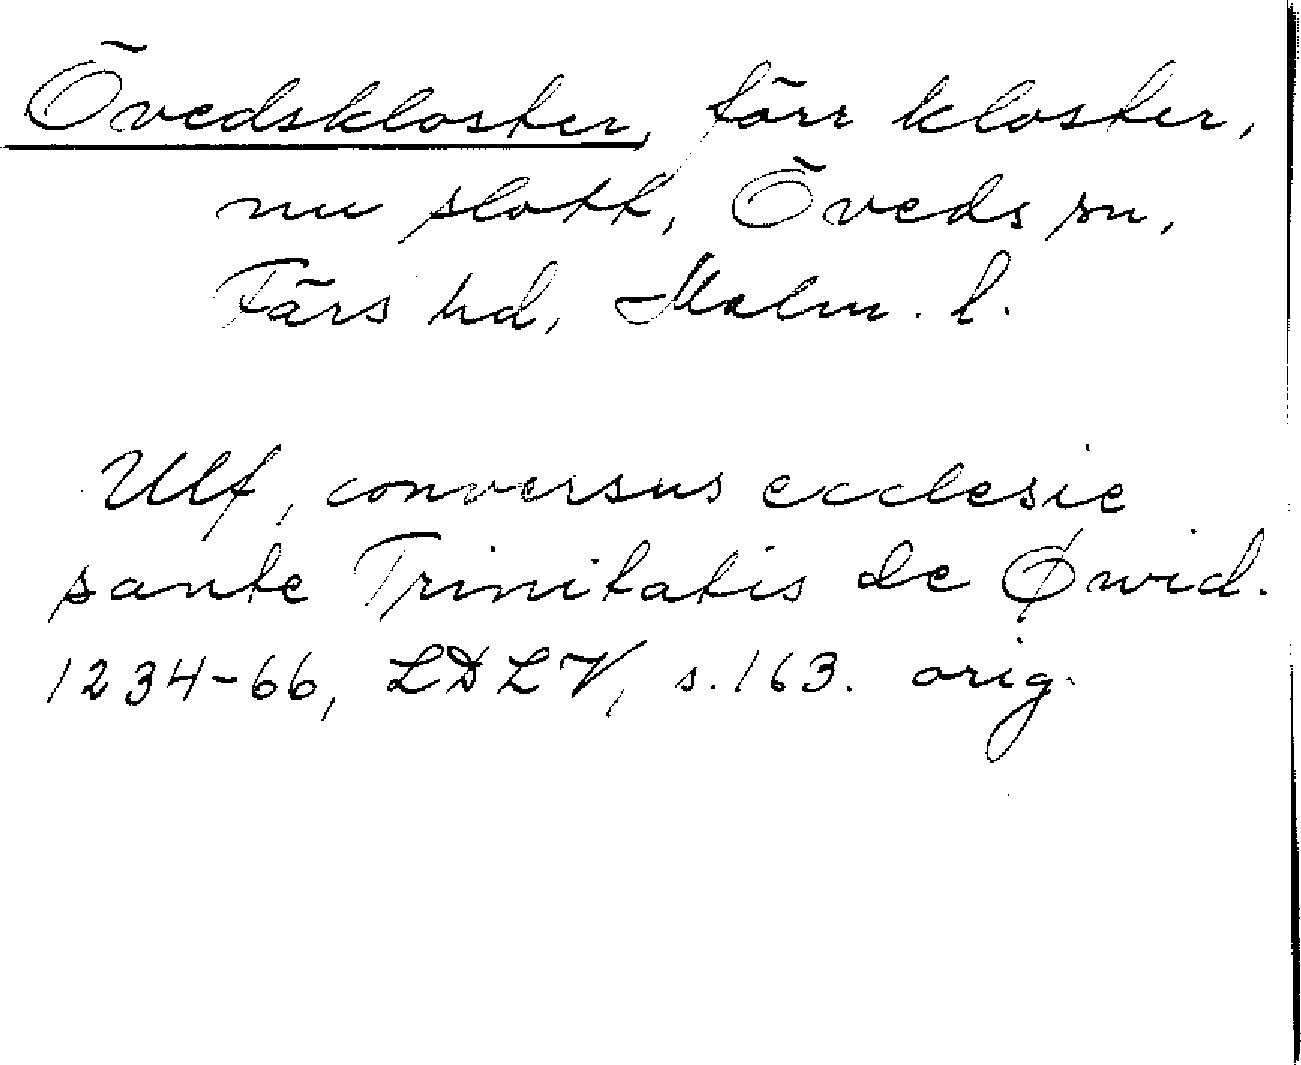 Övedskloster, förr kloster,
nu slott, Öveds sn,
Färs hd, Malm. l.
Ulf, conversus ecclesie
sante Trinitatis de Øwid.
1234-66, LDLV, s. 163. orig.